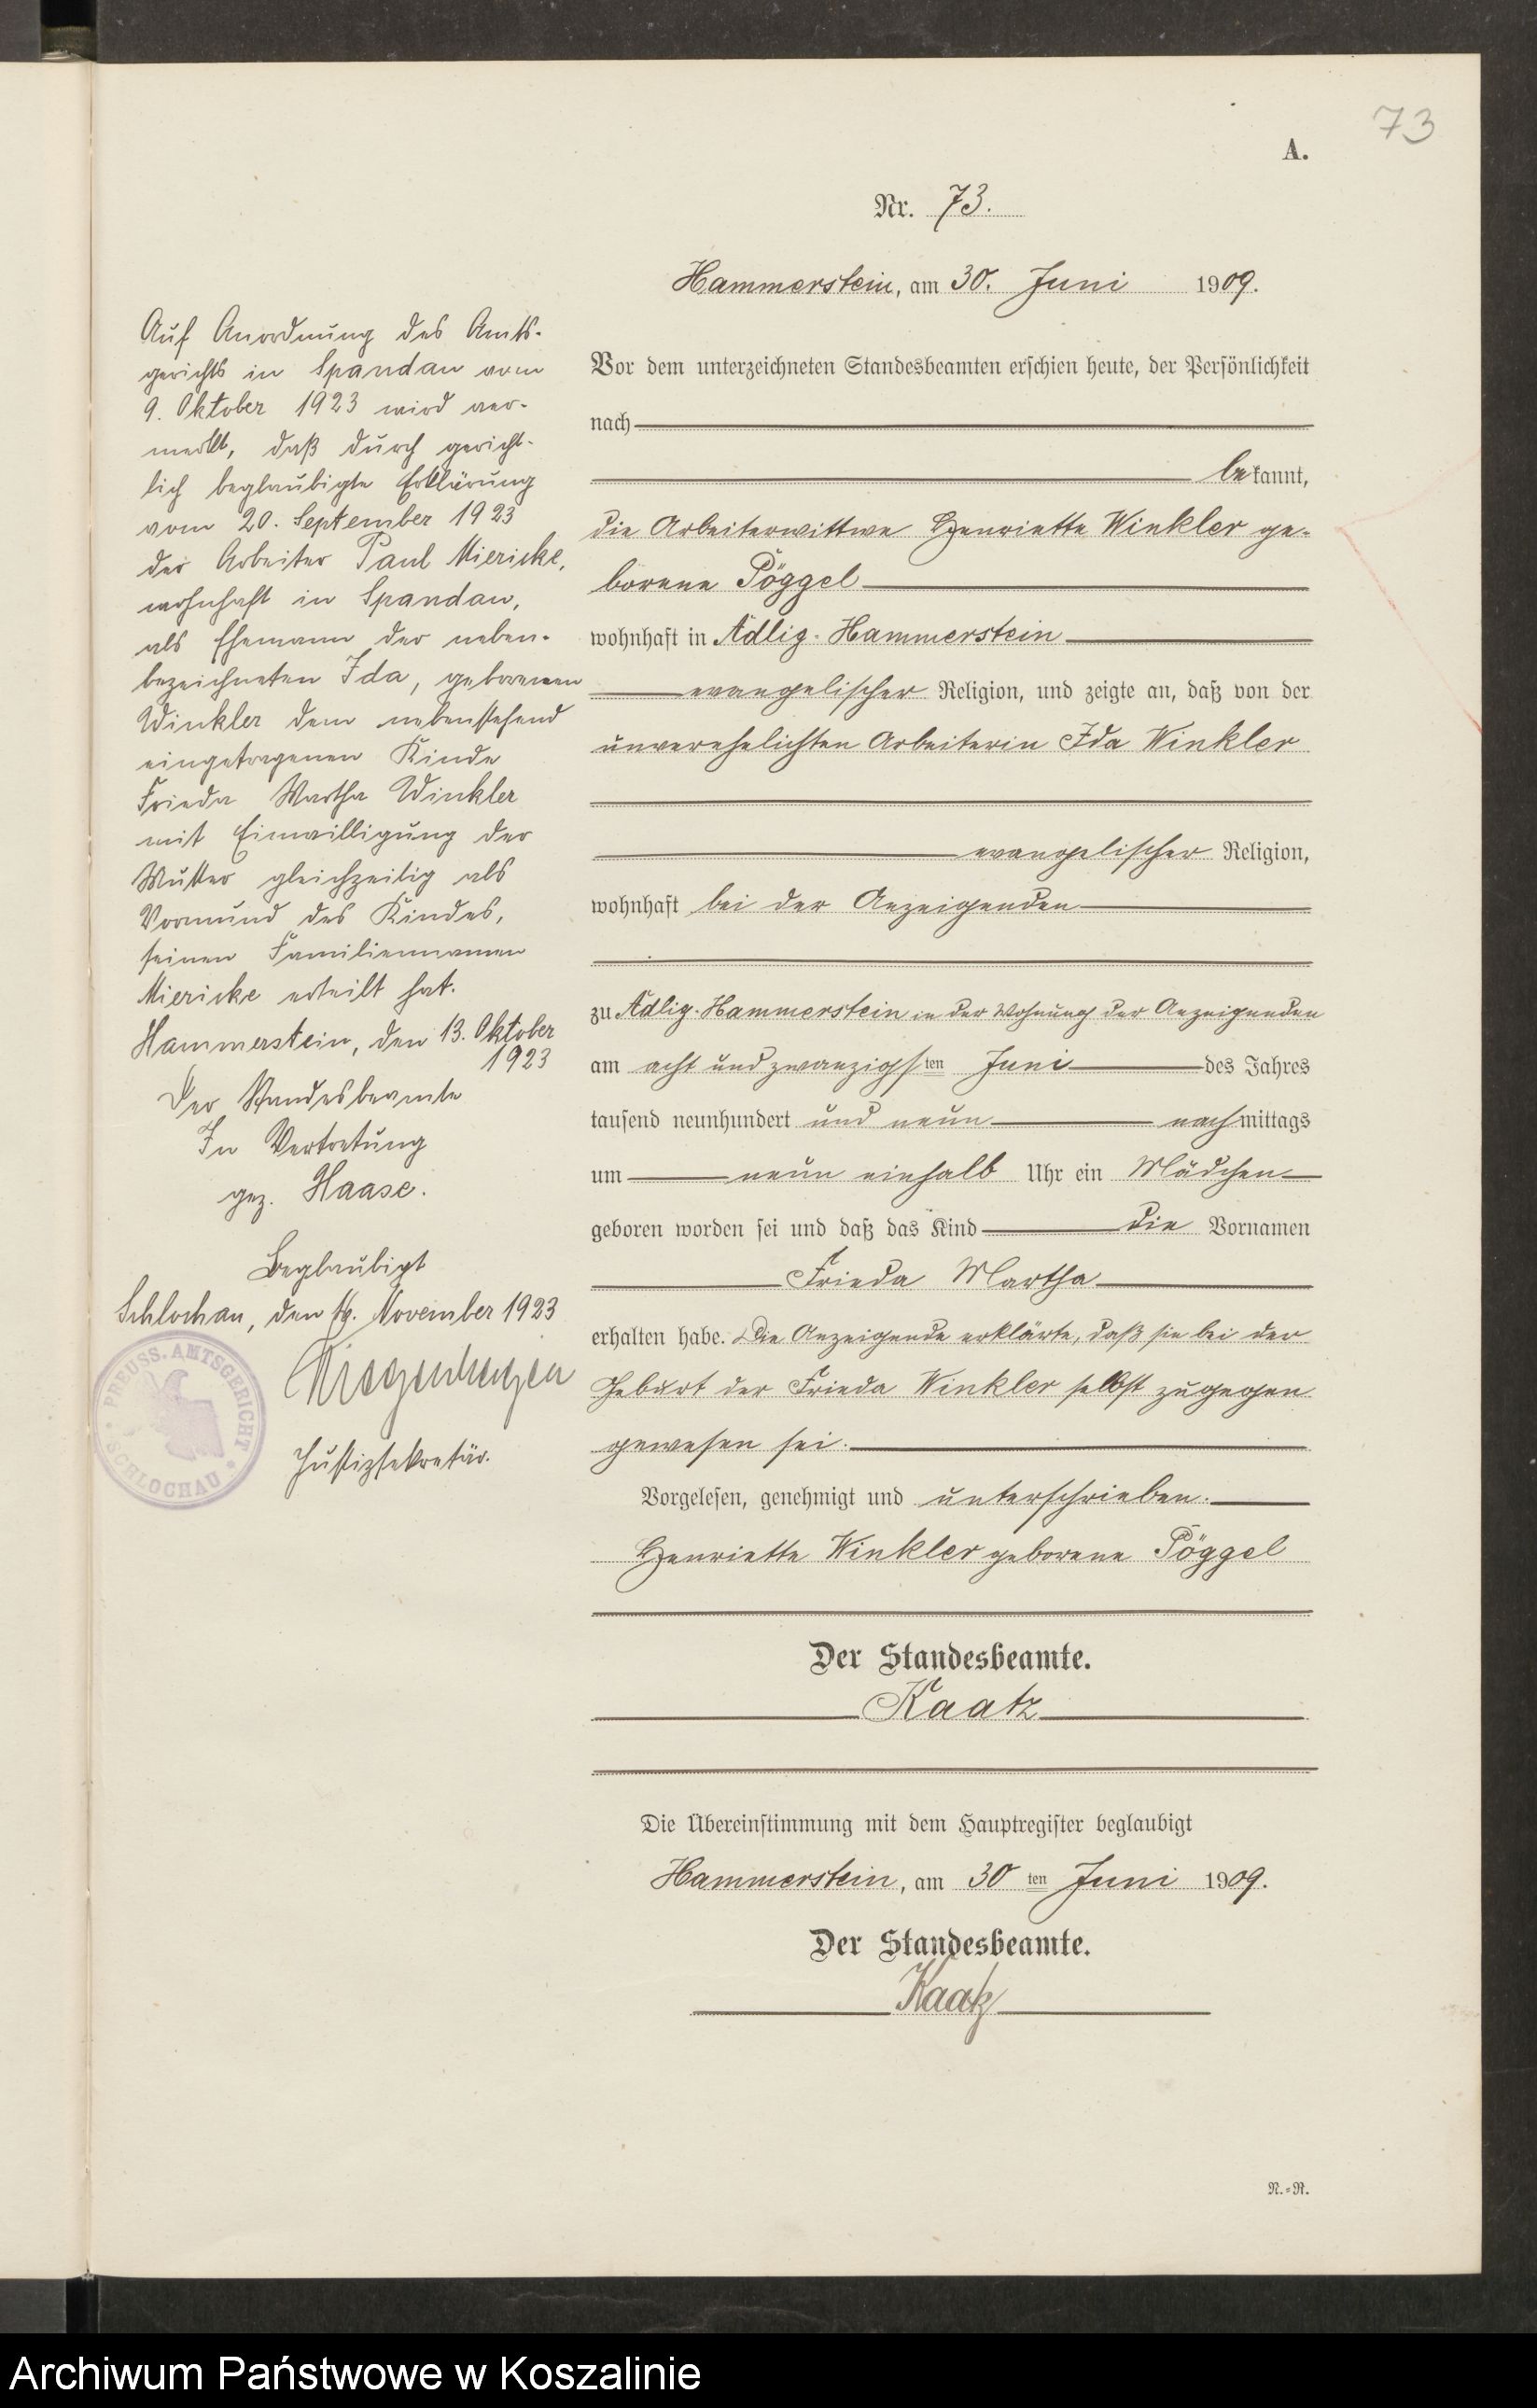 73
A.
Nr. 73.
Hammerstein, am 30. Juni 1909.
Vor dem unterzeichneten Standesbeamten erschien heute, der Persönlichkeit
nach
bekannt,
die Arbeiterwittwe Henriette Winkler ge-
borene Pöggel
wohnhaft in Adlig. Hammerstein
evangelischer Religion, und zeigte an, daß von der
unverehelichten Arbeiterin Ida Winkler
evangelischer Religion,
wohnhaft bei der Anzeigenden
zu Adlig. Hammerstein in der Wohnung der Anzeigenden
am acht und zwanzigsten Juni des Jahres
tausend neunhundert und neun nachmittags
um neun einhalb Uhr ein Mädchen
geboren worden sei und daß das Kind die Vornamen
Frieda Martha
erhalten habe. Die Anzeigende erklärte, daß sie bei der
Geburt der Frieda Winkler selbst zugegen
gewesen sei.
Vorgelesen, genehmigt und unterschrieben.
Henriette Winkler geborene Pöggel
Der Standesbeamte.
Kaatz
Die Übereinstimmung mit dem Hauptregister beglaubigt
Hammerstein, am 30 ten Juni 1909.
Der Standesbeamte.
Kaatz
N.=R.
Auf Anordnung des Amts-
gerichts in Spandau vom
9. Oktober 1923 wird ver-
merkt, daß durch gericht-
lich beglaubigte Erklärung
vom 20. September 1923
der Arbeiter Paul Miericke,
wohnhaft in Spandau,
als Ehemann der neben-
bezeichneten Ida, geborenen
Winkler dem nebenstehend
eingetragenen Kinde
Frieda Martha Winkler
mit Einwilligung der
Mutter gleichzeitig als
Vormund des Kindes,
seinen Familiennamen
Miericke erteilt hat.
Hammerstein, den 13. Oktober
1923
Der Standesbeamte
In Vertretung
gez. Haase.
Beglaubigt
Schlochau, den November 1923
Justizsekretär.
PREUSS. AMTSGERICHT
SCHLOCHAU
Archiwum Państwowe w Koszalinie